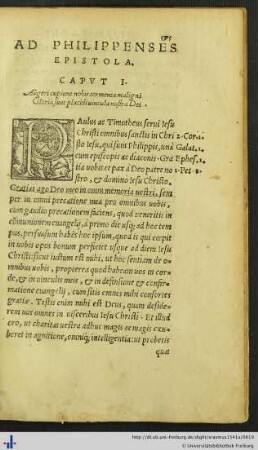 AD PHILIPPENSES
EPISTOLA.
CAPVT I.
Paulus ac Timotheus serui Iesu
Christi omnibus sanctis in Chri 2-Cor-1
sto Iesu, qui sunt Philippis, unà Galat.1.
cum episcopis ac diaconis-Gra Ephes.1.
tia uobis et pax à Deo patre no 1-Pet-1-
stro, & domino Iesu Christo.
Gratias ago Deo meo in omni memoria uestri, sem
per in omni precatione mea pro omnibus uobis,
cum gaudio precationem faciens, quod ueneritis in
communionem euangelij, à primo die usq; ad hoc tem
pus, persuasum habēs hoc ipsum, quod is qui coepit
in uobis opus bonum perficiet usque ad diem Iesu
Christi: sicut iustum est mihi, ut hoc sentiam de o-
mnibus uobis, propterea quod habeam uos in cor-
de, & in uinculis meis, & in defensione & confir-
matione euangelij, cum sitis omnes mihi consortes
gratiæ. Testis enim mihi est Deus, quàm deside-
rem uos omnes in uisceribus Iesu Christi. Et illud
oro, ut charitas uestra adhuc magis ac magis exu-
beret in agnitione, omniq; intelligentia: ut probetis
quæ
http://dl.ub.uni-freiburg.de/diglit/erasmus1541a/0619
© Universitätsbibliothek Freiburg